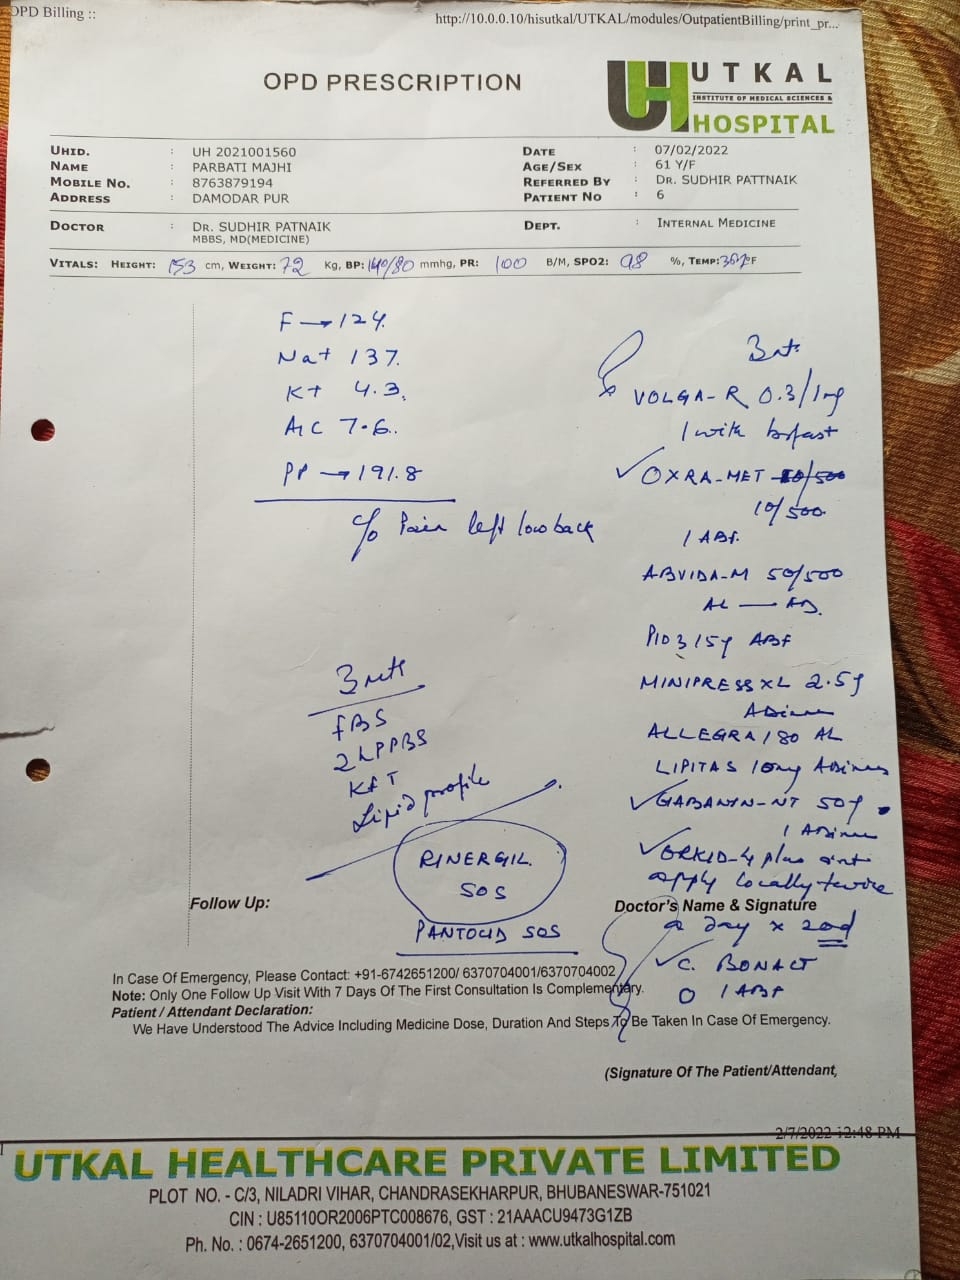 OPD Billing ::
http://10.0.0.10/hisutkal/UTKAL/modules/OutpatientBilling/print_pr...
OPD PRESCRIPTION
UTKAL
INSTITUTE OF MEDICAL SCIENCES &
HOSPITAL
UHID. : UH 2021001560
NAME : PARBATI MAJHI
MOBILE NO. : 8763879194
ADDRESS : DAMODAR PUR
DATE : 07/02/2022
AGE/SEX : 61 Y/F
REFERRED BY : DR. SUDHIR PATTNAIK
PATIENT NO : 6
DOCTOR : DR. SUDHIR PATNAIK
MBBS, MD(MEDICINE)
DEPT. : INTERNAL MEDICINE
VITALS: HEIGHT: 153 cm, WEIGHT: 72 Kg, BP: 140/80 mmhg, PR: 100 B/M, SPO2: 98 %, TEMP: °F
F → 124
Na+ 137
K+ 4.3
A1C 7.6
PP → 191.8
c/o Pain left low back
3
FBS
2hPPBS
KFT
Lipid profile
RINERGIL
SOS
PANTOCID SOS
3
VOLGA-R 0.3/1mg
1 with brfast
OXRA-MET 10/500
10/500
1 ABF
ABVIDA-M 50/500
AL — AD
PIO 3 15 ABF
MINIPRESS XL 2.5
ADinner
ALLEGRA 180 AL
LIPITAS 10mg ADinner
GABANYN-NT 50
1 ADinner
ORKID-4 plus oint
apply locally twice
a day x 20d
C. BONACT
1 ABF
Follow Up:
Doctor's Name & Signature
In Case Of Emergency, Please Contact: +91-6742651200/ 6370704001/6370704002
Note: Only One Follow Up Visit With 7 Days Of The First Consultation Is Complementary.
Patient / Attendant Declaration:
We Have Understood The Advice Including Medicine Dose, Duration And Steps To Be Taken In Case Of Emergency.
(Signature Of The Patient/Attendant,
2/7/2022 12:48 PM
UTKAL HEALTHCARE PRIVATE LIMITED
PLOT NO. - C/3, NILADRI VIHAR, CHANDRASEKHARPUR, BHUBANESWAR-751021
CIN : U85110OR2006PTC008676, GST : 21AAACU9473G1ZB
Ph. No. : 0674-2651200, 6370704001/02,Visit us at : www.utkalhospital.com